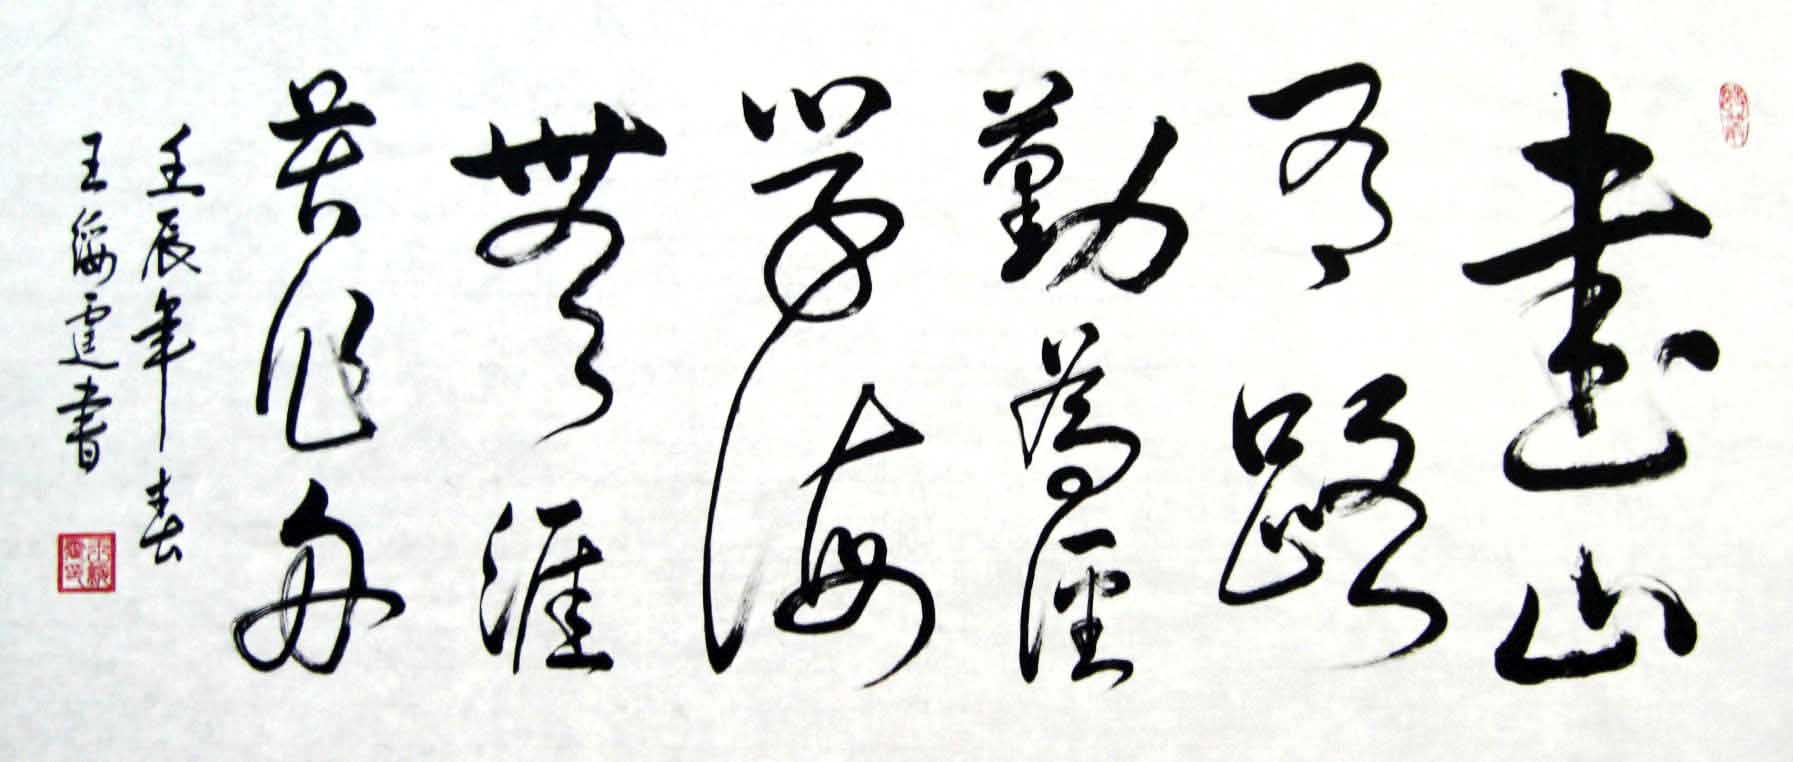 書山
有路
勤為徑
學海
無涯
苦作舟
壬辰年春
王綏霆書